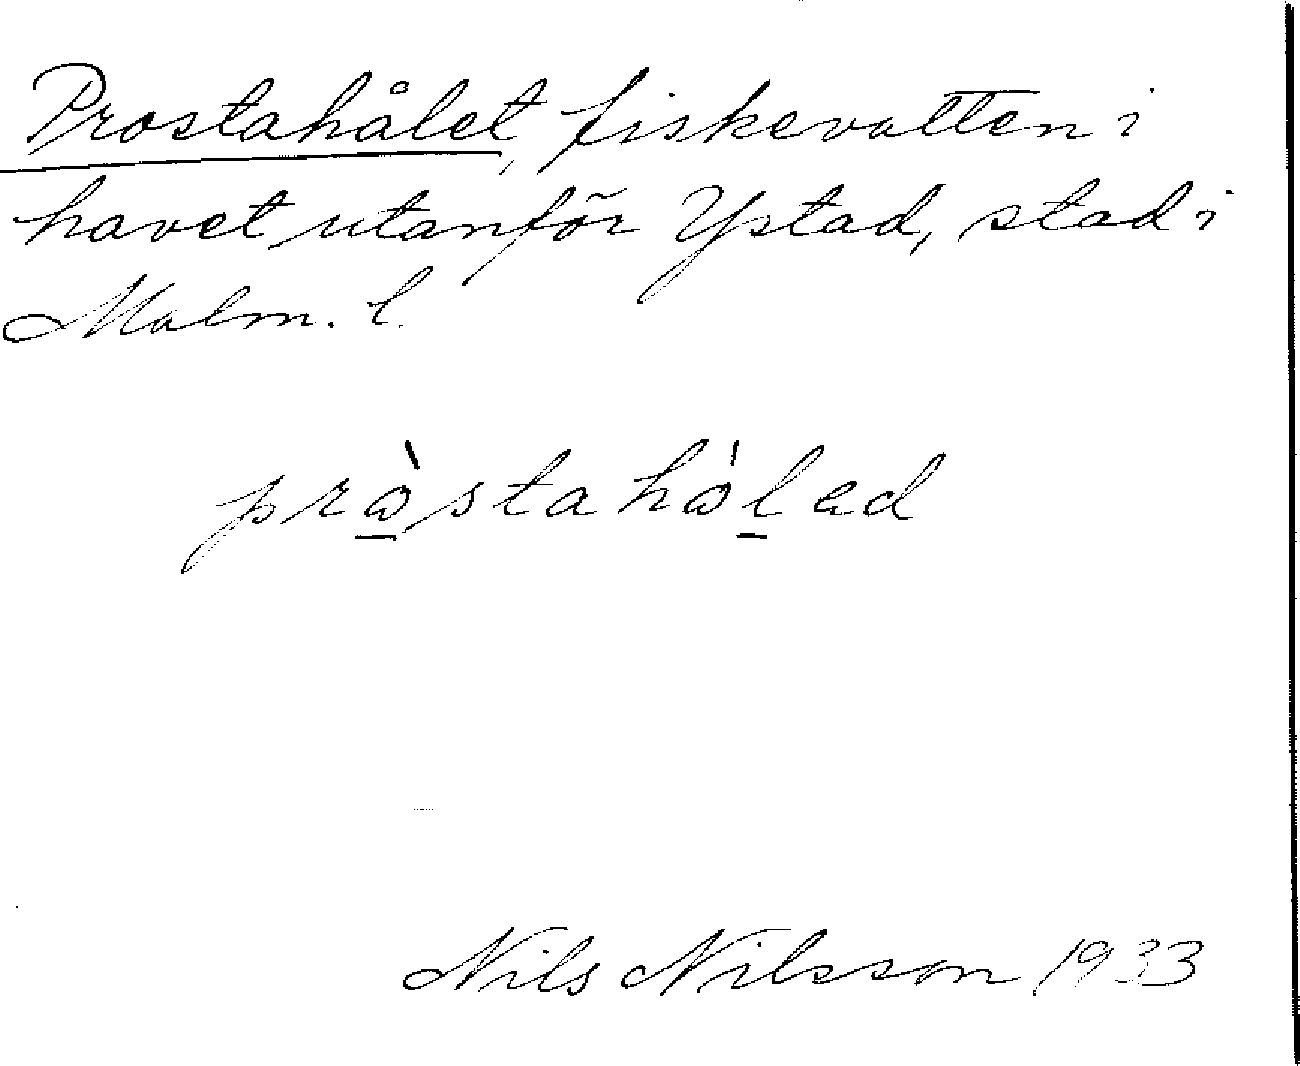 Prostahålet, fiskevatten i
havet utanför Ystad, stad i
Malm. l.
pròstahòlad
Nils Nilsson 1933